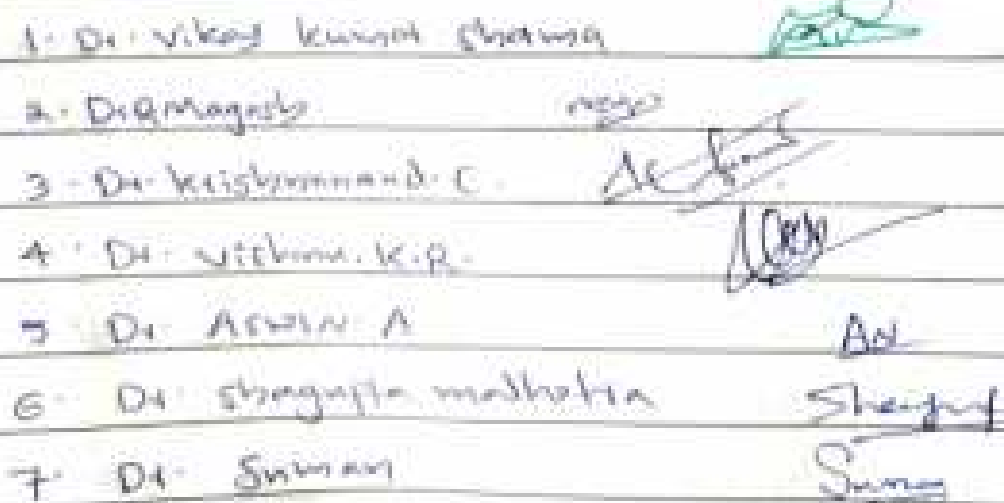 1. Dr. Vikas Kumar Sharma
2. Dr. Magesh
3. Dr. Krishnanand. C.
4. Dr. Vishnu. K.R.
5 Dr. Aswin A
6. Dr. Shagufta malhotra Shaguf
7. Dr. Suman Suman